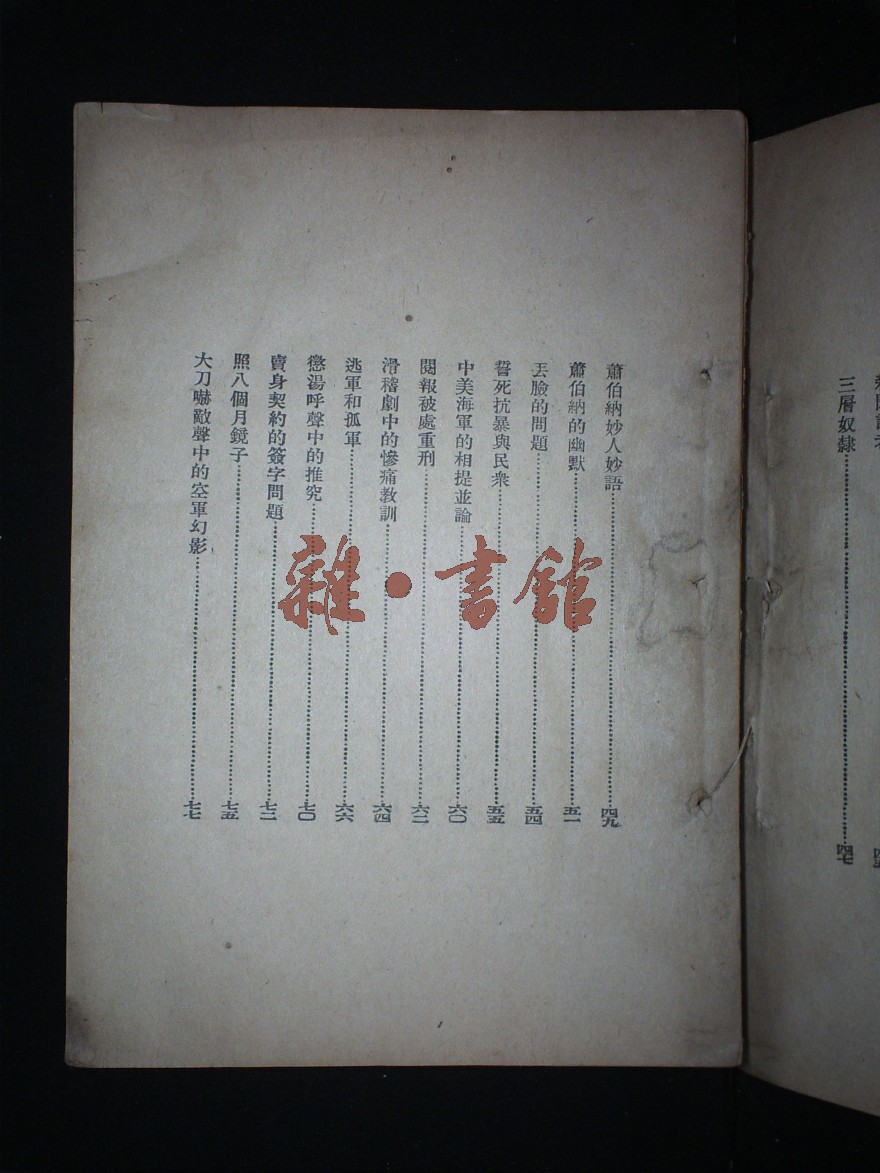 三層奴隸……四七
蕭伯納妙人妙語……四九
蕭伯納的幽默……五一
丟臉的問題……五四
誓死抗暴與民衆……五五
中美海軍的相提並論……六〇
閱報被處重刑……六二
滑稽劇中的慘痛教訓……六四
逃軍和孤軍……六六
懲湯呼聲中的推究……七〇
賣身契約的簽字問題……七二
照八個月鏡子……七五
大刀嚇敵聲中的空軍幻影……七七
雜·書館